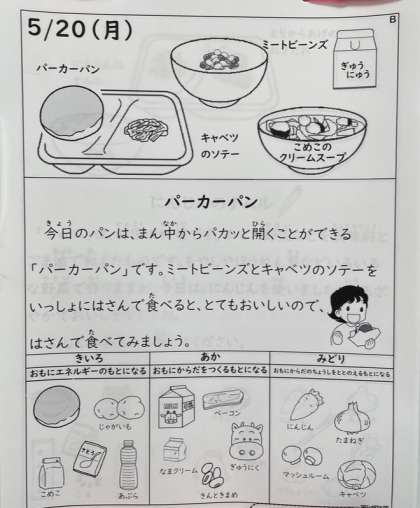 B
5/20(月)
ミートビーンズ
ぎゅう
にゅう
パーカーパン
キャベツ
のソテー
こめこの
クリームスープ
パーカーパン
今日のパンは、まん中からパカッと開くことができる
「パーカーパン」です。ミートビーンズとキャベツのソテーを
いっしょにはさんで食べると、とてもおいしいので、
はさんで食べてみましょう。
きいろ
おもにエネルギーのもとになる
あか
おもにからだをつくるもとになる
みどり
おもにからだのちょうしをととのえるもとになる
じゃがいも
ベーコン
にんじん
たまねぎ
さとう
こめこ
あぶら
なまクリーム
ぎゅうにく
きんときまめ
マッシュルーム
キャベツ